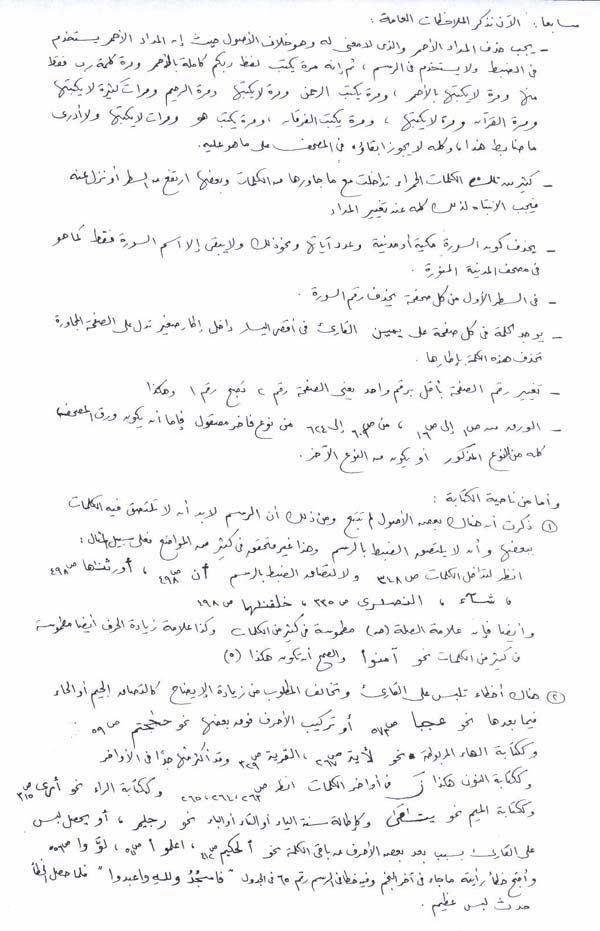 سابعا : الآن نذكر الملاحظات العامة :
– يجب حذف المداد الأحمر والذى لا معنى له وهو خلاف الأصول حيث إنه المداد الأحمر يستخدم
فى الضبط ولا يستخدم فى الرسم ، ثم إنه مرة يكتب لفظ ربكم كاملة بالأحمر ومرة كلمة رب فقط
منها ومرة لا يكتبها بالأحمر ، ومرة يكتب الرحمن ومرة لا يكتبها ومرة الرحيم ومرات كثيرة لا يكتبها
ومرة القرآن ومرة لا يكتبها ، ومرة يكتب الفرقان ، ومرة يكتب هو ومرات لا يكتبها ولا أدرى
ما ضابط هذا ، وكله لا يجوز إبقاؤه فى المصحف على ما هو عليه .
– كثير من تلك الكلمات الحمراء تداخلت مع ما جاورها من الكلمات وبعضها ارتفع عن السطر أو نزل عنه
فيجب الانتباه لذلك كله عند تغيير المداد
– يحذف كون السورة مكية أو مدنية وعدد آياتها ونحو ذلك ولا يبقى إلا اسم السورة فقط كما هو
فى مصحف المدينة المنورة .
– فى السطر الأول من كل صفحة يحذف رقم السورة .
– يوجد كلمة فى كل صفحة على يمين القارئ فى أقصى اليسار داخل إطار صغير تدل على الصفحة المجاورة
تحذف هذه الكلمة بإطارها .
– تغيير رقم الصفحة بأقل برقم واحد يعنى الصفحة رقم ٢ تصبح رقم ١ وهكذا
– الورق من ص١ إلى ص١٦ ، من ص٦٠٩ إلى ٦٢٤ من نوع فاخر مصقول فإما أن يكون ورق المصحف
كله من النوع المذكور أو يكون من النوع الآخر .
وأما من ناحية الكتابة :
① ذكرت أن هناك بعض الأصول لم تتبع ومن ذلك أن الرسم لابد أن لا تلتصق فيه الكلمات
ببعضها وأن لا يلتصق الضبط بالرسم وهذا غير متحقق فى كثير من المواضع فعلى سبيل المثال :
انظر لتداخل الكلمات ص٣٤٨ ولالتصاق الضبط بالرسم أن ص٤٩٨ ، أورثنها ص٤٩٨
، شآء ، النصرى ص٢٣٥ ، خلقنها ص١٩٨
وأيضا فإن علامة الصلة (صـ) مطموسة فى كثير من الكلمات وكذا علامة زيادة الحرف أيضا مطموسة
فى كثير من الكلمات نحو آمنوا والصحيح أن تكون هكذا (٥)
② هناك أخطاء تلبس على القارئ وتخالف المطلوب من زيادة الإيضاح كالتصاق الجيم أو الحاء
فيما بعدها نحو عجبا ص٥٧٣ أو تركيب الأحرف فوق بعضها نحو حججتم ص٥٩
وككتابة الهاء المربوطة نحو لأية ص٢٦٧ ، القرية ص٣٢٩ وقد أكثر منها جدًا فى الأواخر
وككتابة النون هكذا فى أواخر الكلمات انظر ص٢٦٣ ، ٢٦٤ ، ٢٦٥ وككتابة الراء نحو أخرى ص٣١٥
وككتابة الميم نحو وكإطالة سنة الياء أو التاء أو الباء نحو رجيم ، أو يحصل لبس
على القارئ بسبب بعد بعض الأحرف عن باقى الكلمة نحو الحكيم ، اعلموا ، لوّوا
وأقبح خطأ رأيته ما جاء فى آخر النجم وفيه خطأ فى الرسم رقم ٦٥ فى الجدول "فاسجُدُ وللهِ واعبدوا" فلما حصل الخطأ
حدث لبس عظيم .